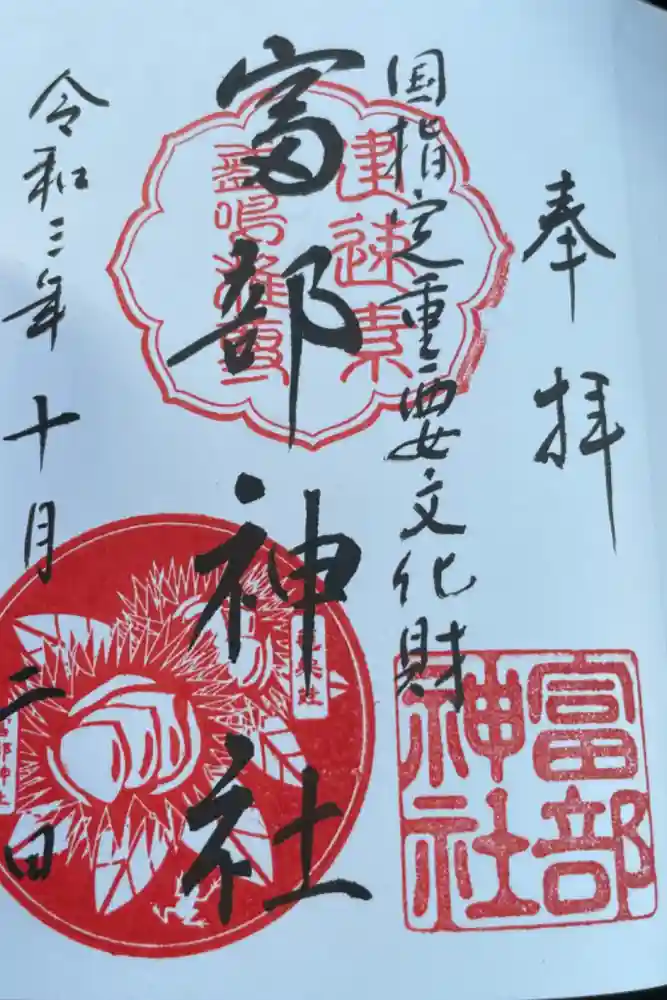 奉拝
国指定重要文化財
富部神社
令和三年十月二日
建速素
富部
神社
富部神社